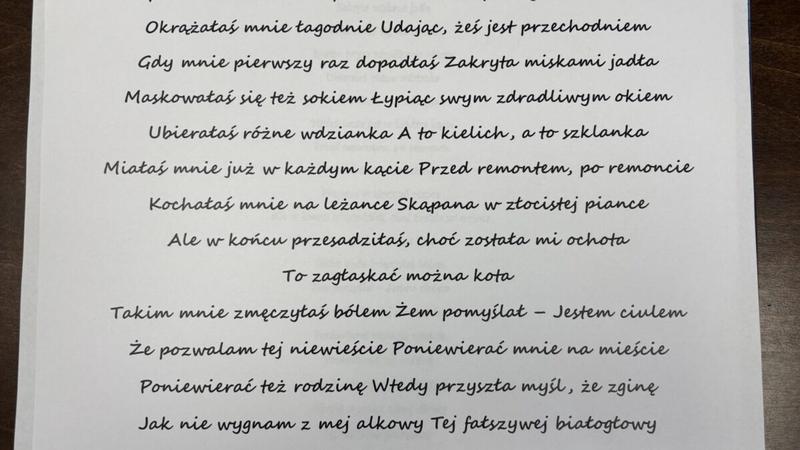 Okrążałaś mnie łagodnie Udając, żeś jest przechodniem
Gdy mnie pierwszy raz dopadłaś Zakryta miskami jadła
Maskowałaś się też sokiem Łypiąc swym zdradliwym okiem
Ubierałaś różne wdzianka A to kielich, a to szklanka
Miałaś mnie już w każdym kącie Przed remontem, po remoncie
Kochałaś mnie na leżance Skąpana w złocistej piance
Ale w końcu przesadziłaś, choć została mi ochota
To zagłaskać można kota
Takim mnie zmęczyłaś bólem Żem pomyślał – Jestem ciulem
Że pozwalam tej niewieście Poniewierać mnie na mieście
Poniewierać też rodzinę Wtedy przyszła myśl, że zginę
Jak nie wygnam z mej alkowy Tej fałszywej białogłowy